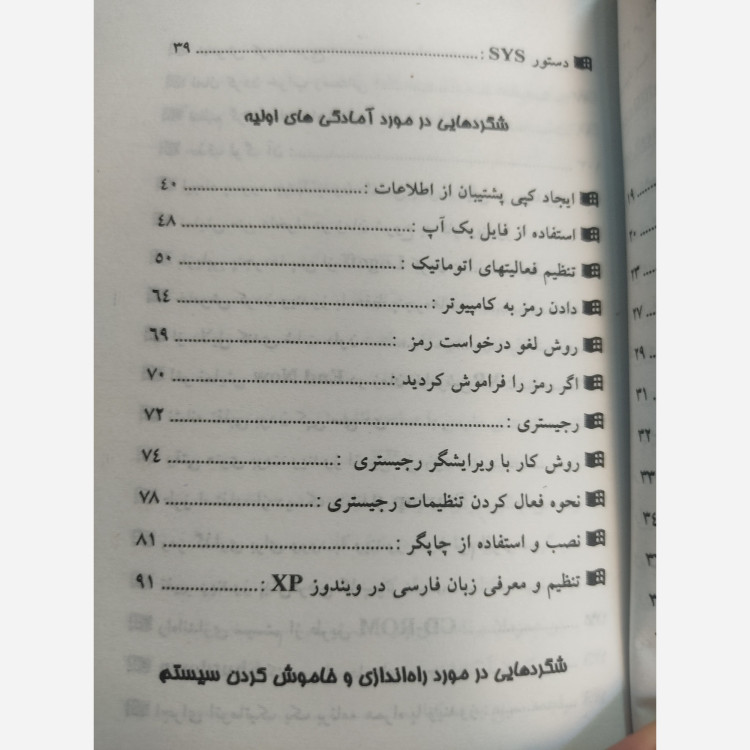 دستور SYS : ........ ۳۹
شگردهایی در مورد آمادگی های اولیه
ایجاد کپی پشتیبان از اطلاعات : ........ ۴۰
استفاده از فایل بک آپ : ........ ۴۸
تنظیم فعالیتهای اتوماتیک : ........ ۵۰
دادن رمز به کامپیوتر : ........ ۶۴
روش لغو درخواست رمز : ........ ۶۹
اگر رمز را فراموش کردید : ........ ۷۰
رجیستری : ........ ۷۲
روش کار با ویرایشگر رجیستری : ........ ۷۴
نحوه فعال کردن تنظیمات رجیستری : ........ ۷۸
نصب و استفاده از چاپگر : ........ ۸۱
تنظیم و معرفی زبان فارسی در ویندوز XP : ........ ۹۱
شگردهایی در مورد راه‌اندازی و خاموش کردن سیستم
۱۹
۲۰
۲۳
۲۷
۲۹
۳۱
۳۲
۳۳
۳۴